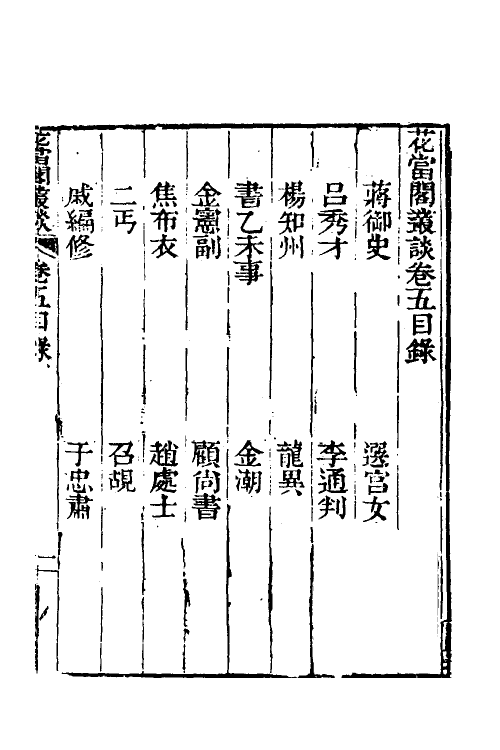 花當閣叢談卷五目錄
蔣御史　選宮女
呂秀才　李通判
楊知州　龍異
書乙未事　金潮
金憲副　顧尚書
焦布衣　趙處士
二丐　召覡
戚編修　于忠肅
花當閣叢談　卷五目錄　一